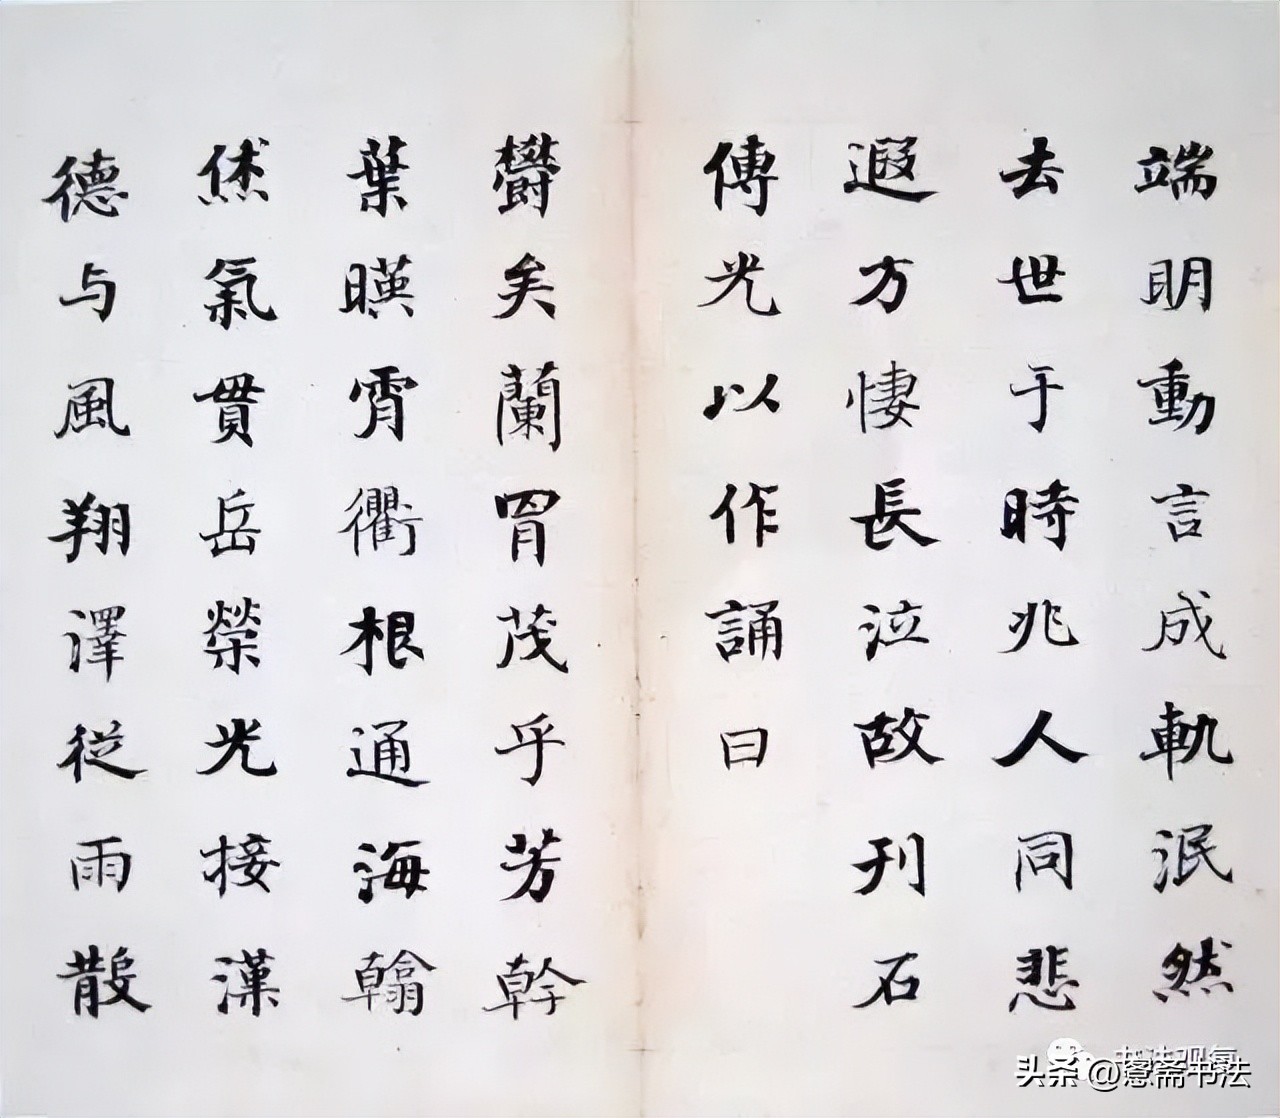 端明動言成軌泯然
去世于時兆人同悲
遐方悽長泣故刊石
傳光以作誦曰
欝矣蘭胃茂乎芳幹
葉暎霄衢根通海翰
倐氣貫岳榮光接漢
德与風翔澤従雨散
头条 @愙斋书法